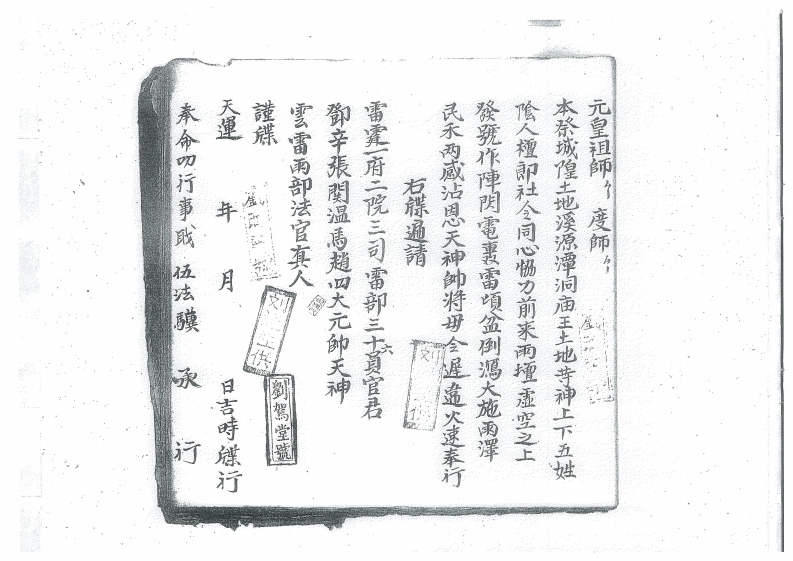 元皇祖師〻 度師〻
本祭城隍土地溪源潭洞庙王土地等神上下五姓
陰人壇郎社令同心恊力前来雨壇虛空之上
發號作陣閃電轟雷頃盆倒瀉大施雨澤
民禾两感沾恩天神帥將毋令遲違火速奉行
右牒遍請
雷霆一府二院三司雷部三十六員官君
鄧辛張関温馬趙四大元帥天神
雲雷雨部法官真人
謹牒
天運 年 月 日吉時牒行
奉命叩行事戝 伍法驥 承行
劉駕堂號